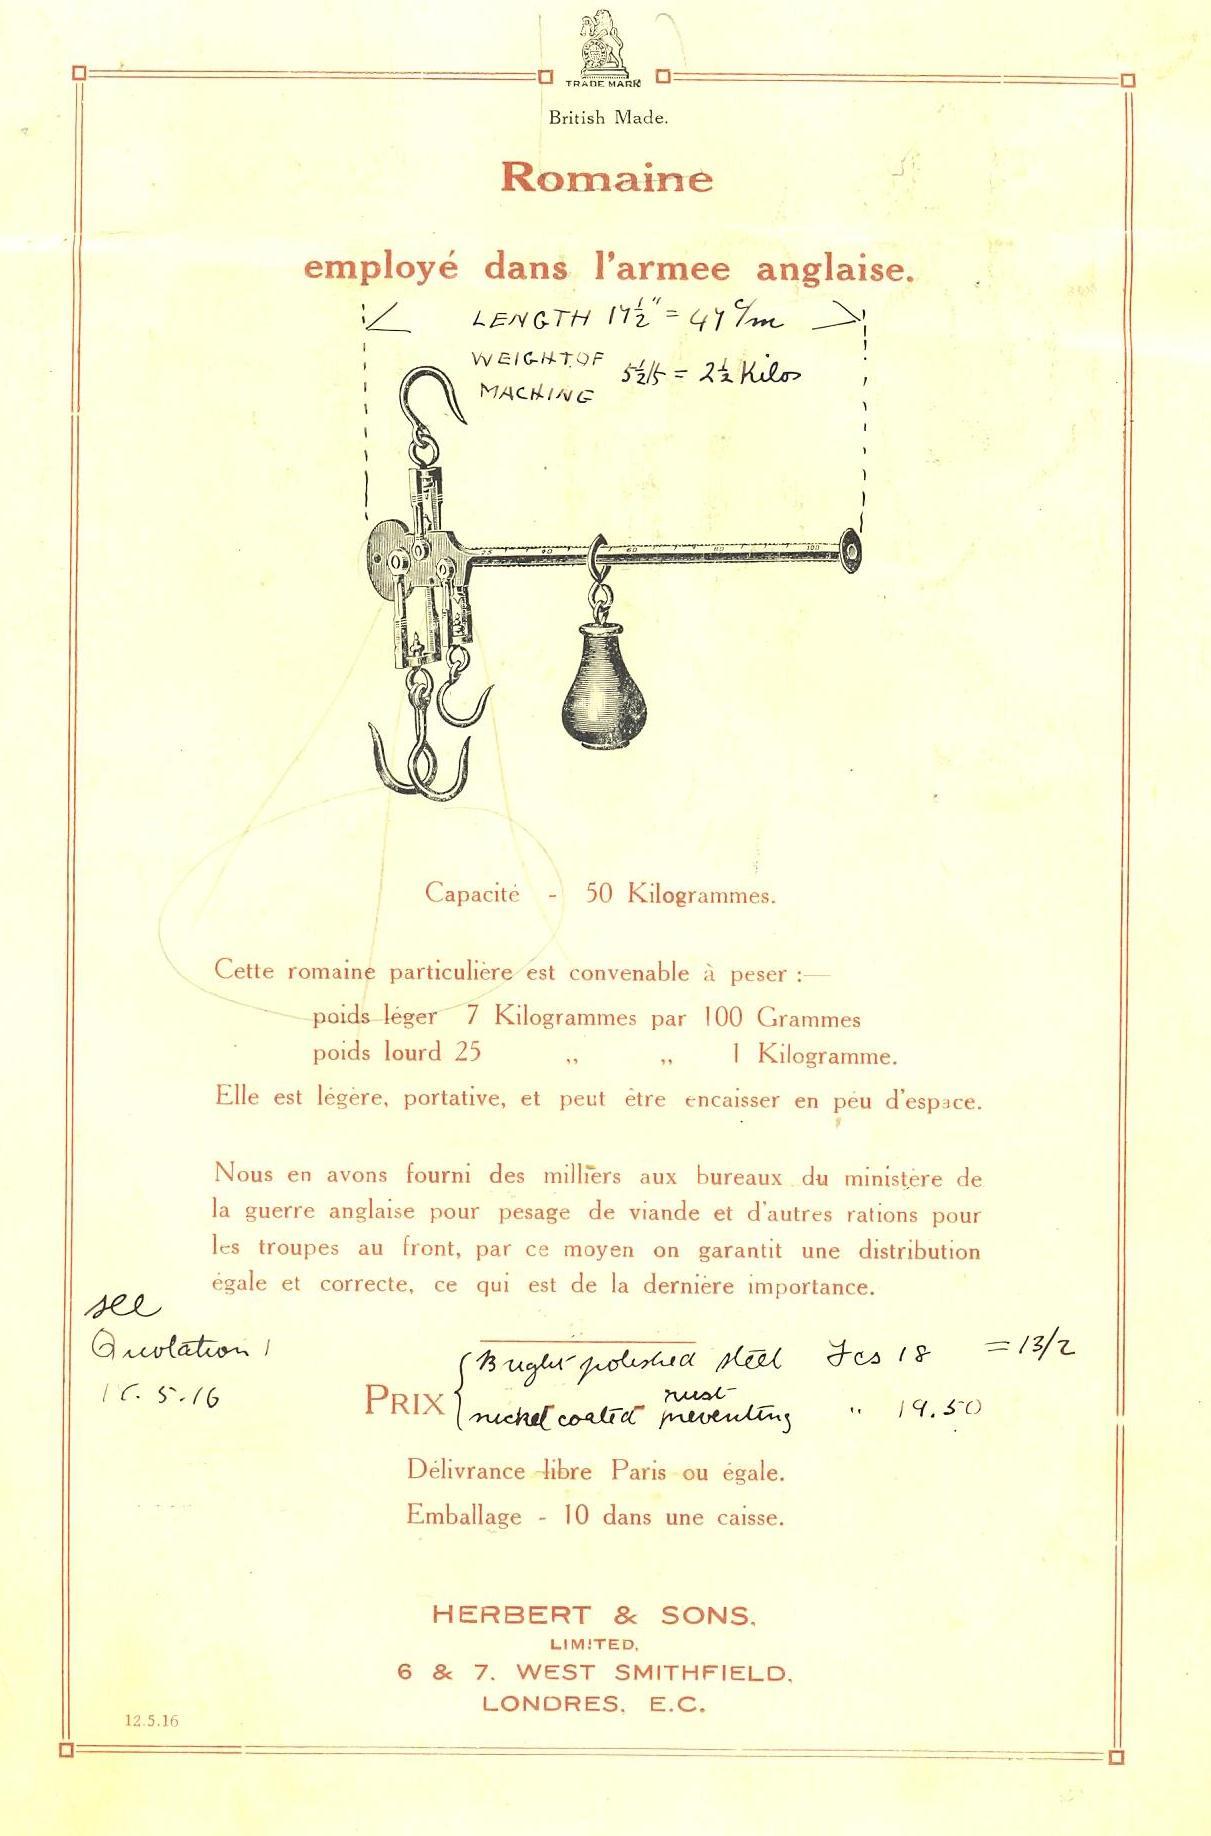 TRADE MARK
British Made.
Romaine
employé dans l'armee anglaise.
LENGTH 17½" = 47 c/m
WEIGHT OF MACHINE 5½ lb = 2½ Kilos
25 40 60 80 100
Capacité - 50 Kilogrammes.
Cette romaine particulière est convenable à peser :—
poids léger 7 Kilogrammes par 100 Grammes
poids lourd 25 ,, ,, 1 Kilogramme.
Elle est légère, portative, et peut être encaisser en peu d'espace.
Nous en avons fourni des milliers aux bureaux du ministère de
la guerre anglaise pour pesage de viande et d'autres rations pour
les troupes au front, par ce moyen on garantit une distribution
égale et correcte, ce qui est de la dernière importance.
see
Quotation
5.16
PRIX
Bright polished steel Fcs 18 = 13/2
nickel coated rust preventing " 19.50
Délivrance libre Paris ou égale.
Emballage - 10 dans une caisse.
HERBERT & SONS,
LIMITED,
6 & 7. WEST SMITHFIELD,
LONDRES, E.C.
12.5.16